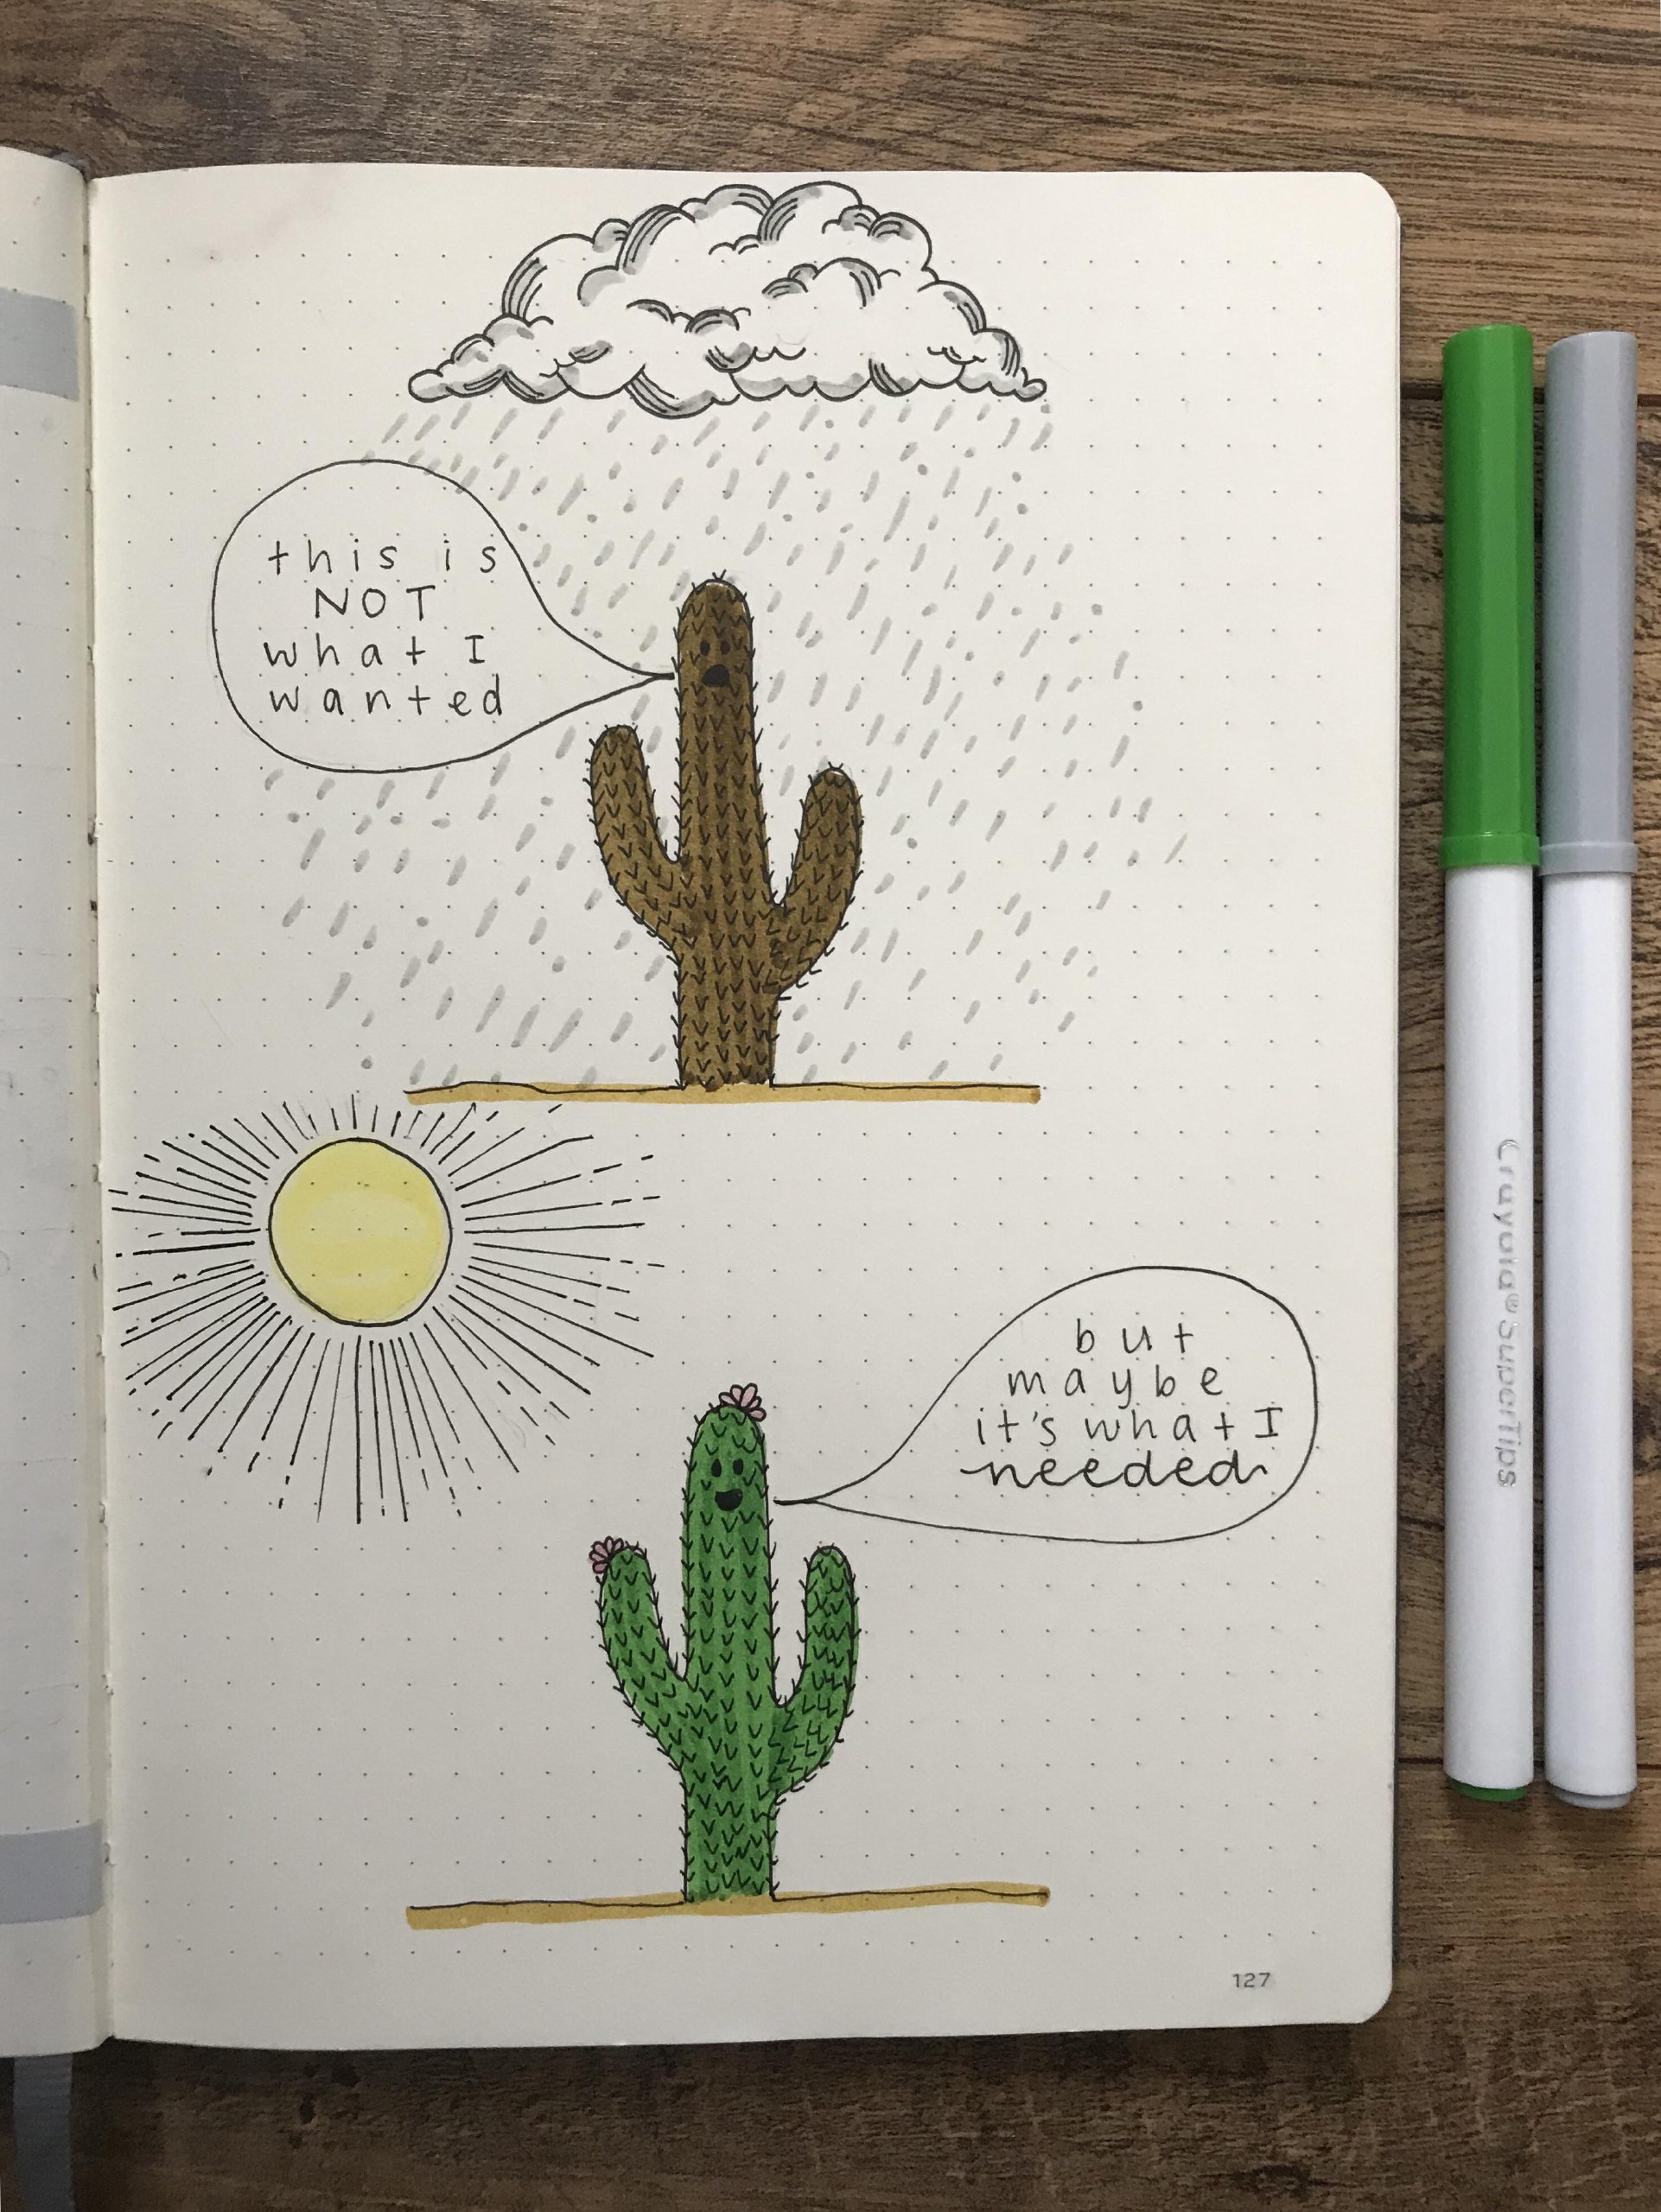 this is
NOT
what I
wanted
but
maybe
it's what I
needed
127
Crayola® SuperTips